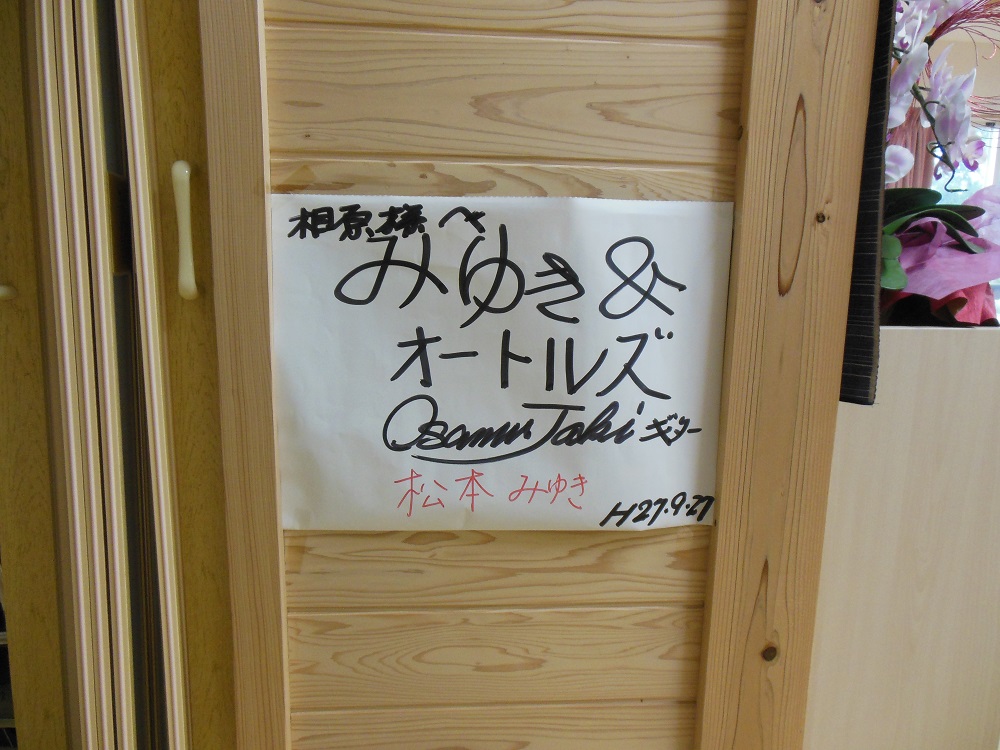 相原様へ
みゆき&
オートルズ
Osamu Taki ギター
松本みゆき
H27.9.27